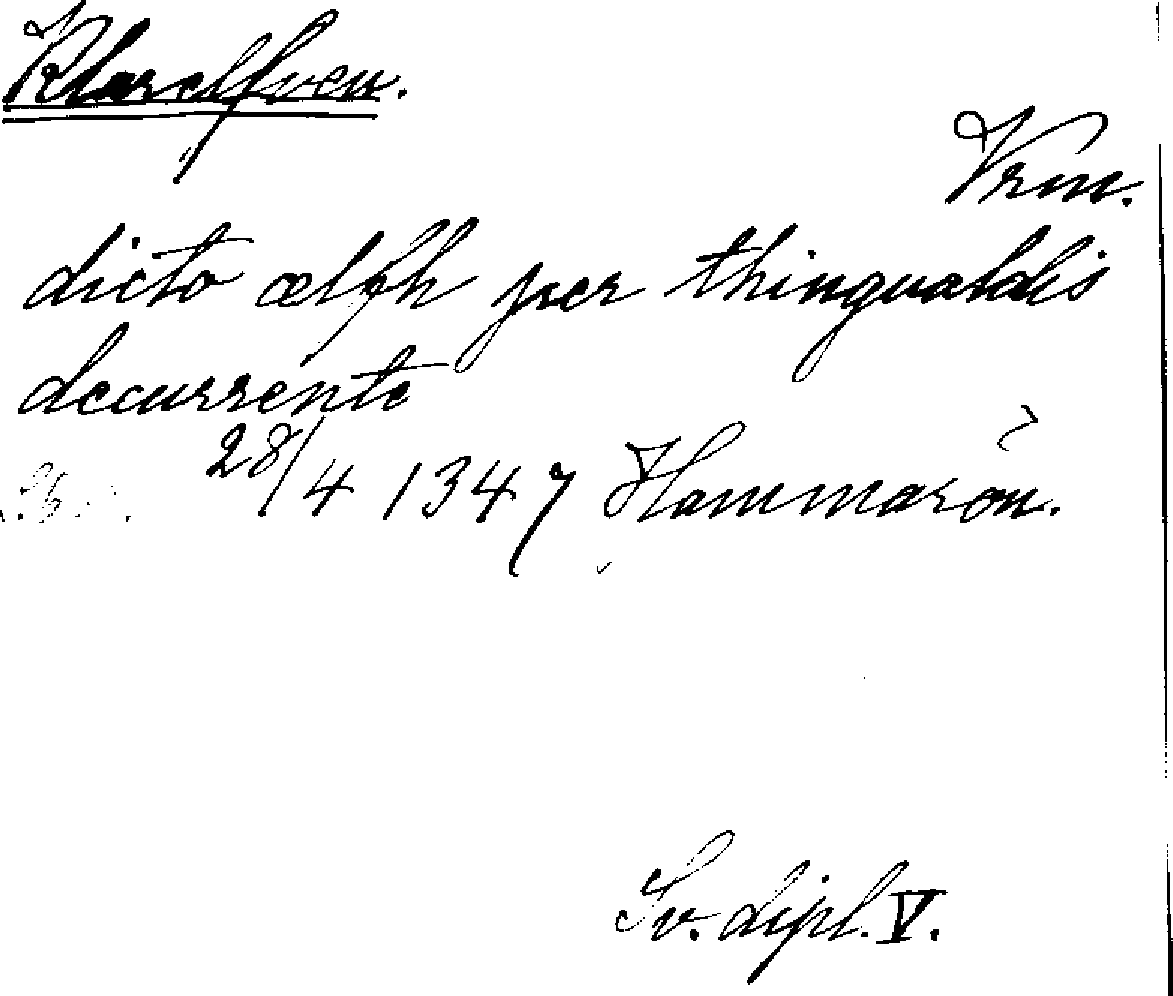 Klarelfven.
Vrm.
dicto ælph per thingualdis
decurrente
28/4 1347 Hammarön.
Sv. dipl. V.